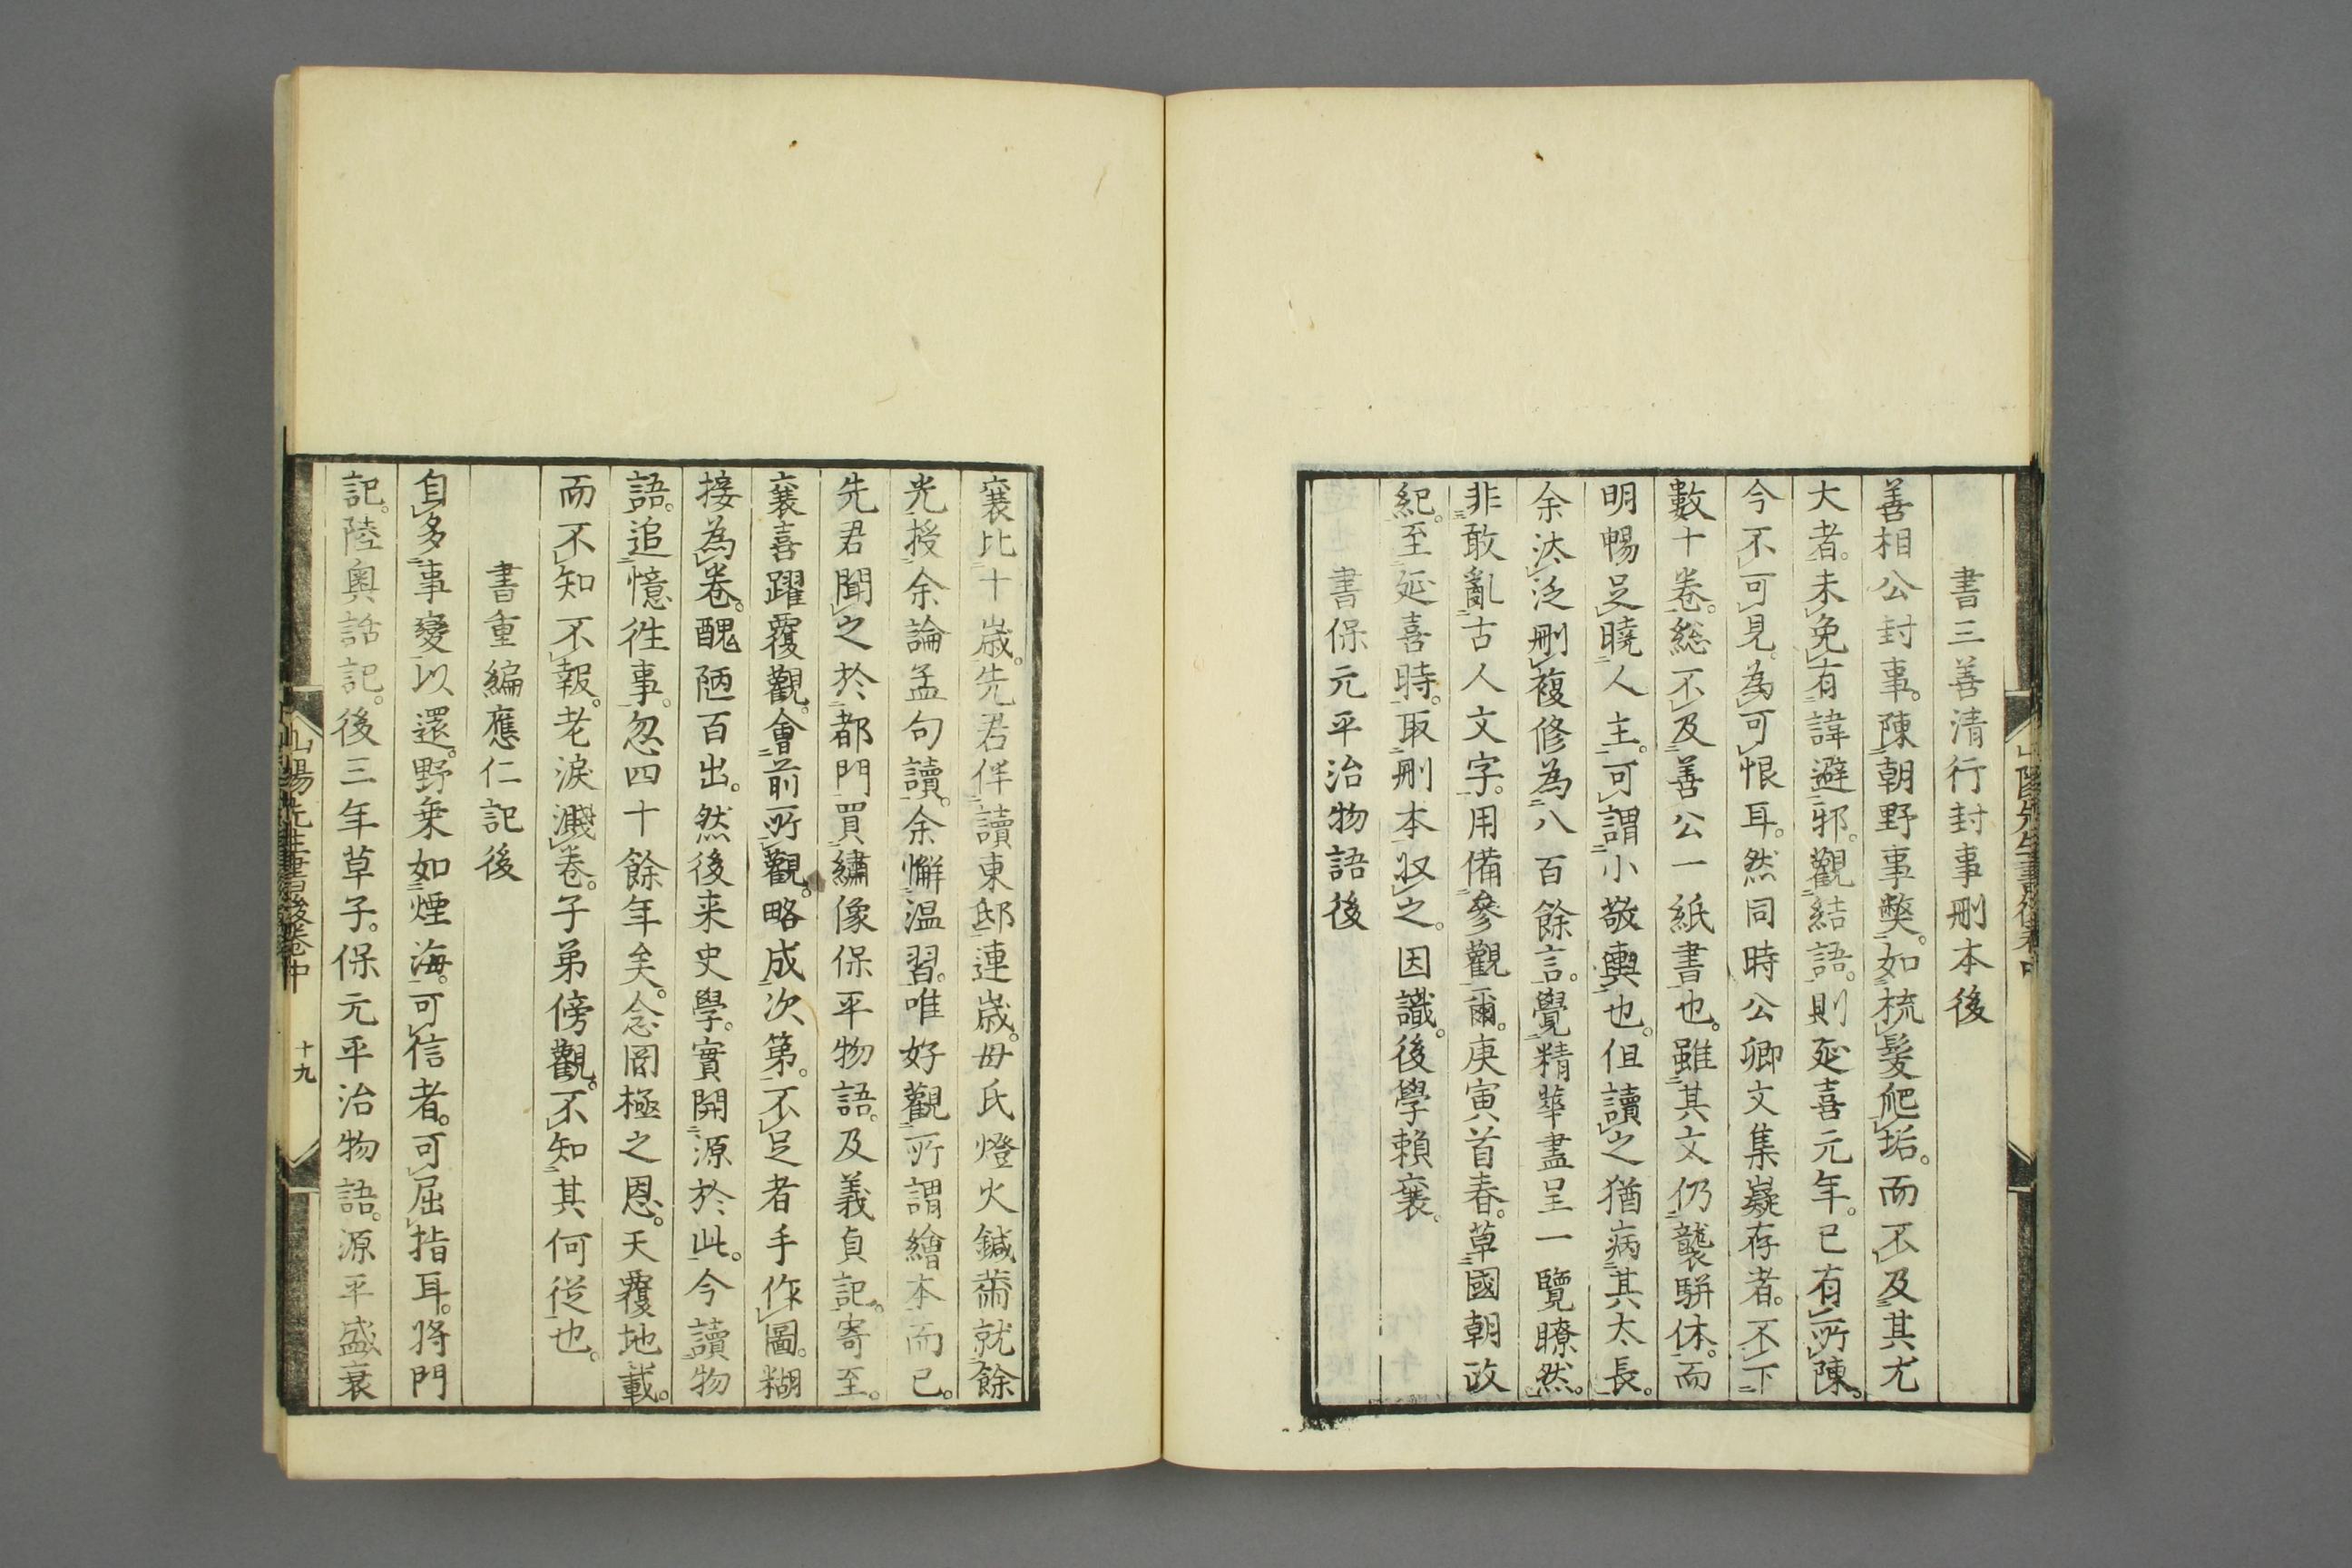 書三善清行封事刪本後
善相公封事。陳朝野事獘。如梳髮爬垢。而不及其尤
大者。未免有諱避邪。觀結語。則延喜元年。已有所陳。
今不可見。為可恨耳。然同時公卿文集嶷存者。不下
數十卷。総不及善公一紙書也。雖其文仍襲駢体。而
明暢足曉人主。可謂小敬輿也。但讀之猶病其太長。
余汰泛刪複修為八百餘言。覺精華盡呈一覽瞭然。
非敢亂古人文字。用備參觀爾。庚寅首春。草國朝政
紀。至延喜時。取刪本収之。因識。後學賴襄。
書保元平治物語後
襄比十歳。先君伴讀東邸連歳。毋氏燈火鍼黹就餘
光授余論孟句讀。余懈温習。唯好觀所謂繪本而已。
先君聞之於都門買繡像保平物語。及義貞記。寄至。
襄喜躍覆觀。會前所觀。略成次第。不足者手作圖。糊
接為卷。醜陋百出。然後来史學。實開源於此。今讀物
語。追憶徃事。忽四十餘年矣。念罔極之恩。天覆地載。
而不知不報。老淚濺卷。子弟傍觀。不知其何従也。
書重編應仁記後
自多事變以還。野乗如煙海。可信者。可屈指耳。将門
記。陸奥話記。後三年草子。保元平治物語。源平盛衰
山陽先生書後卷中
十九